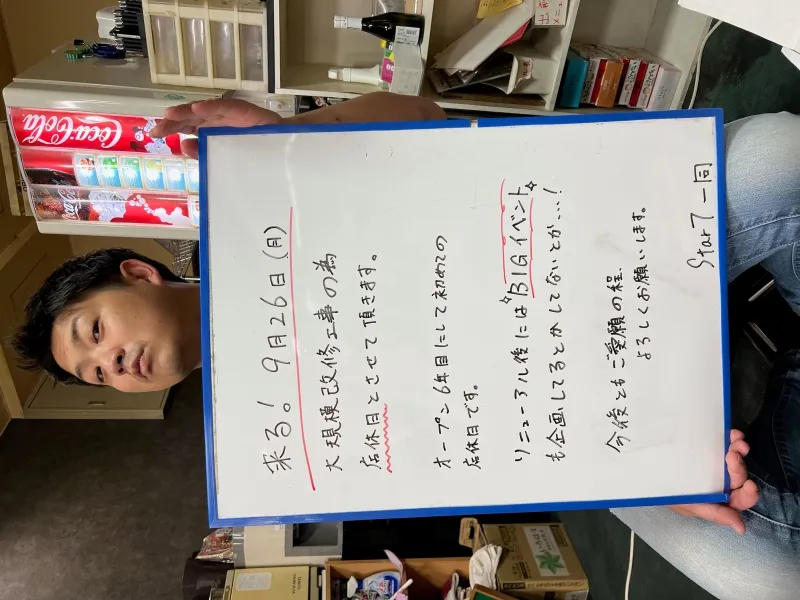 来る！ 9月26日(月)
大規模改修工事の為
店休日とさせて頂きます。
オープン6年目にして初めての
店休日です。
リニューアル後には"BIGイベント"
も企画してるとかしてないとか…!
今後ともご愛顧の程、
よろしくお願いします。
Star7 一同
Coca-Cola
Coca-Cola